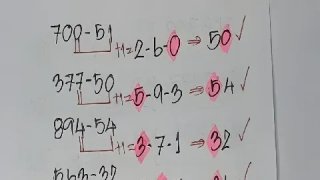 700-51 +1=2-6-0 ⇒ 50 ✓
377-50 +1=5-9-3 ⇒ 54 ✓
894-54 +1=3-7-1 ⇒ 32 ✓
563-32